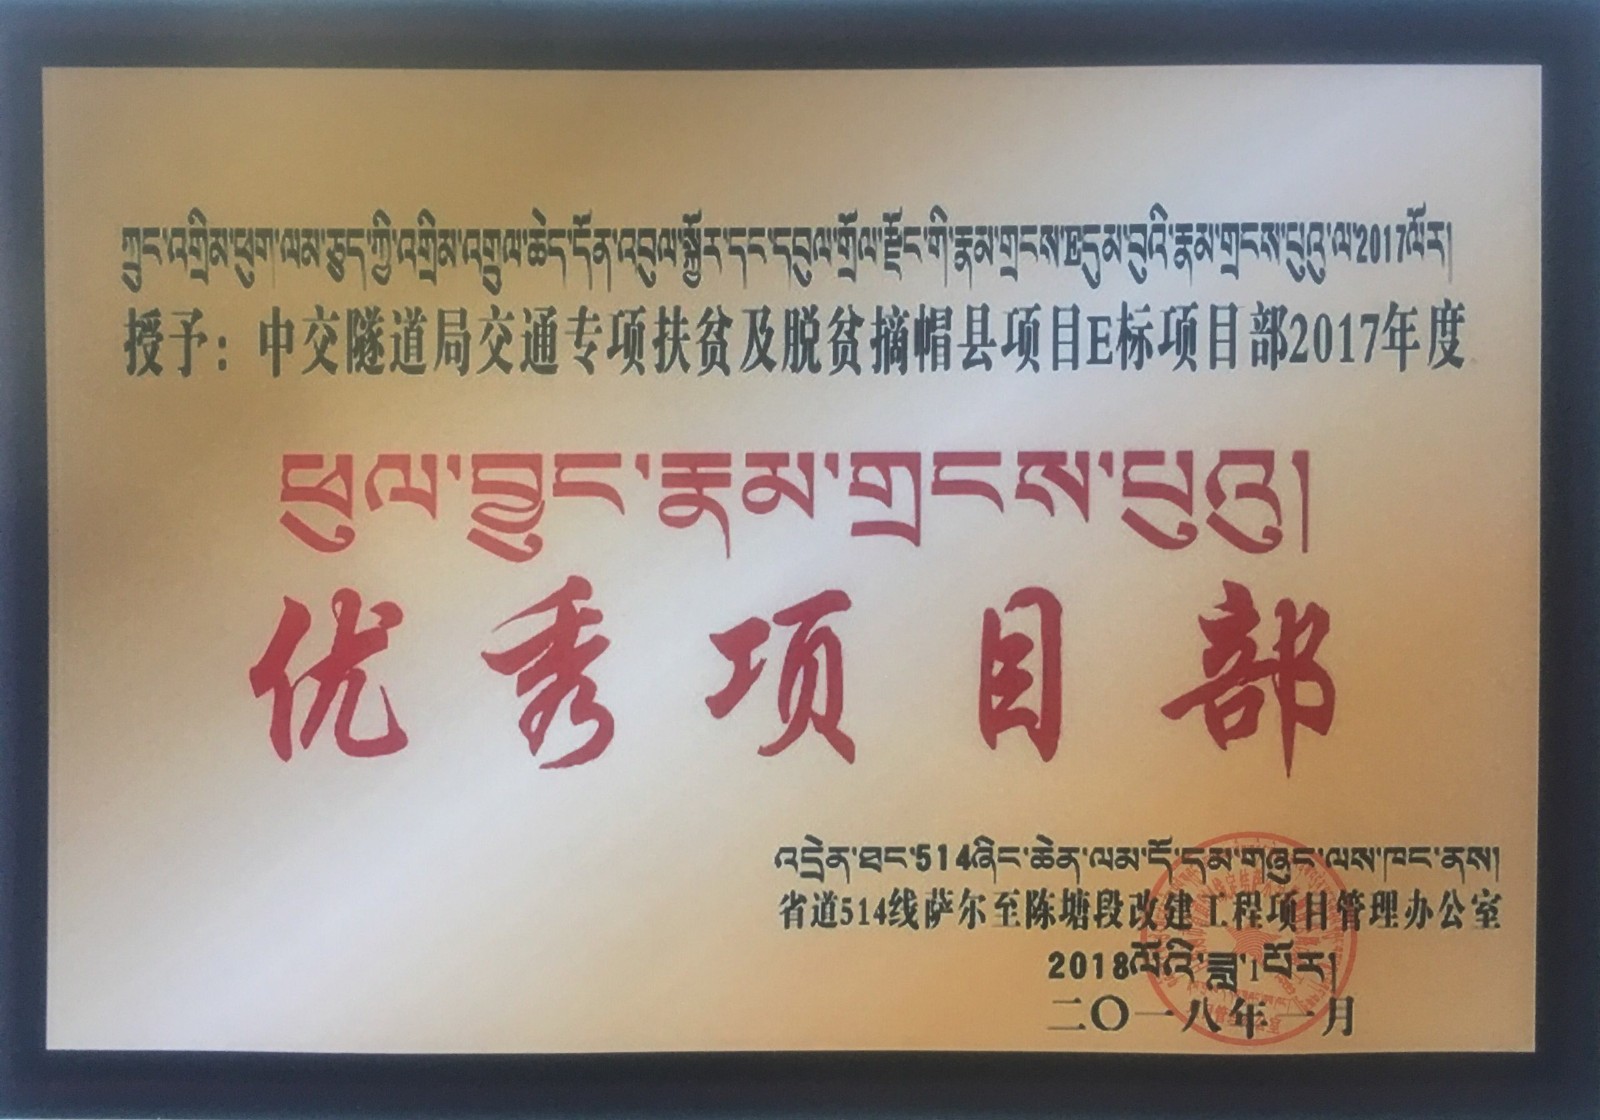 ཀྲུང་འགྲིམ་ཕུག་ལམ་ཅུད་ཀྱི་འགྲིམ་འགྲུལ་ཆེད་དོན་འབུལ་སྐྱོར་དང་དབུལ་གྲོལ་རྫོང་གི་རྣམ་གྲངས་Eདུམ་བུའི་རྣམ་གྲངས་པུའུ་ལ་2017ལོར།
授予：中交隧道局交通专项扶贫及脱贫摘帽县项目E标项目部2017年度
ཕུལ་བྱུང་རྣམ་གྲངས་པུའུ།
优秀项目部
འདྲེན་ཐང་514ཞིང་ཆེན་ལམ་དོ་དམ་གཞུང་ལས་ཁང་ནས།
省道514线萨尔至陈塘段改建工程项目管理办公室
2018ལོའི་ཟླ་1པོར།
二〇一八年一月